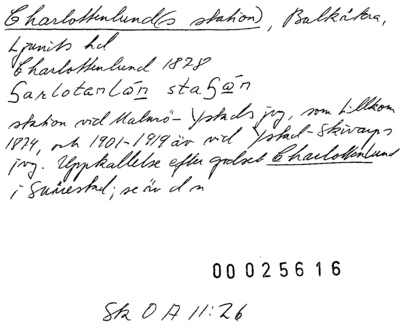 Charlottenlund(s station), Balkåkra,
Ljunits hd
Charlottenlund 1828
station vid Malmö-Ystads jvg, som tillkom
1874, och 1901-1919 äv vid Ystad-Skivarps
jvg. Uppkallelse efter godset Charlottenlund
i Snårestad; se äv d n
00025616
Sk O A 11:26